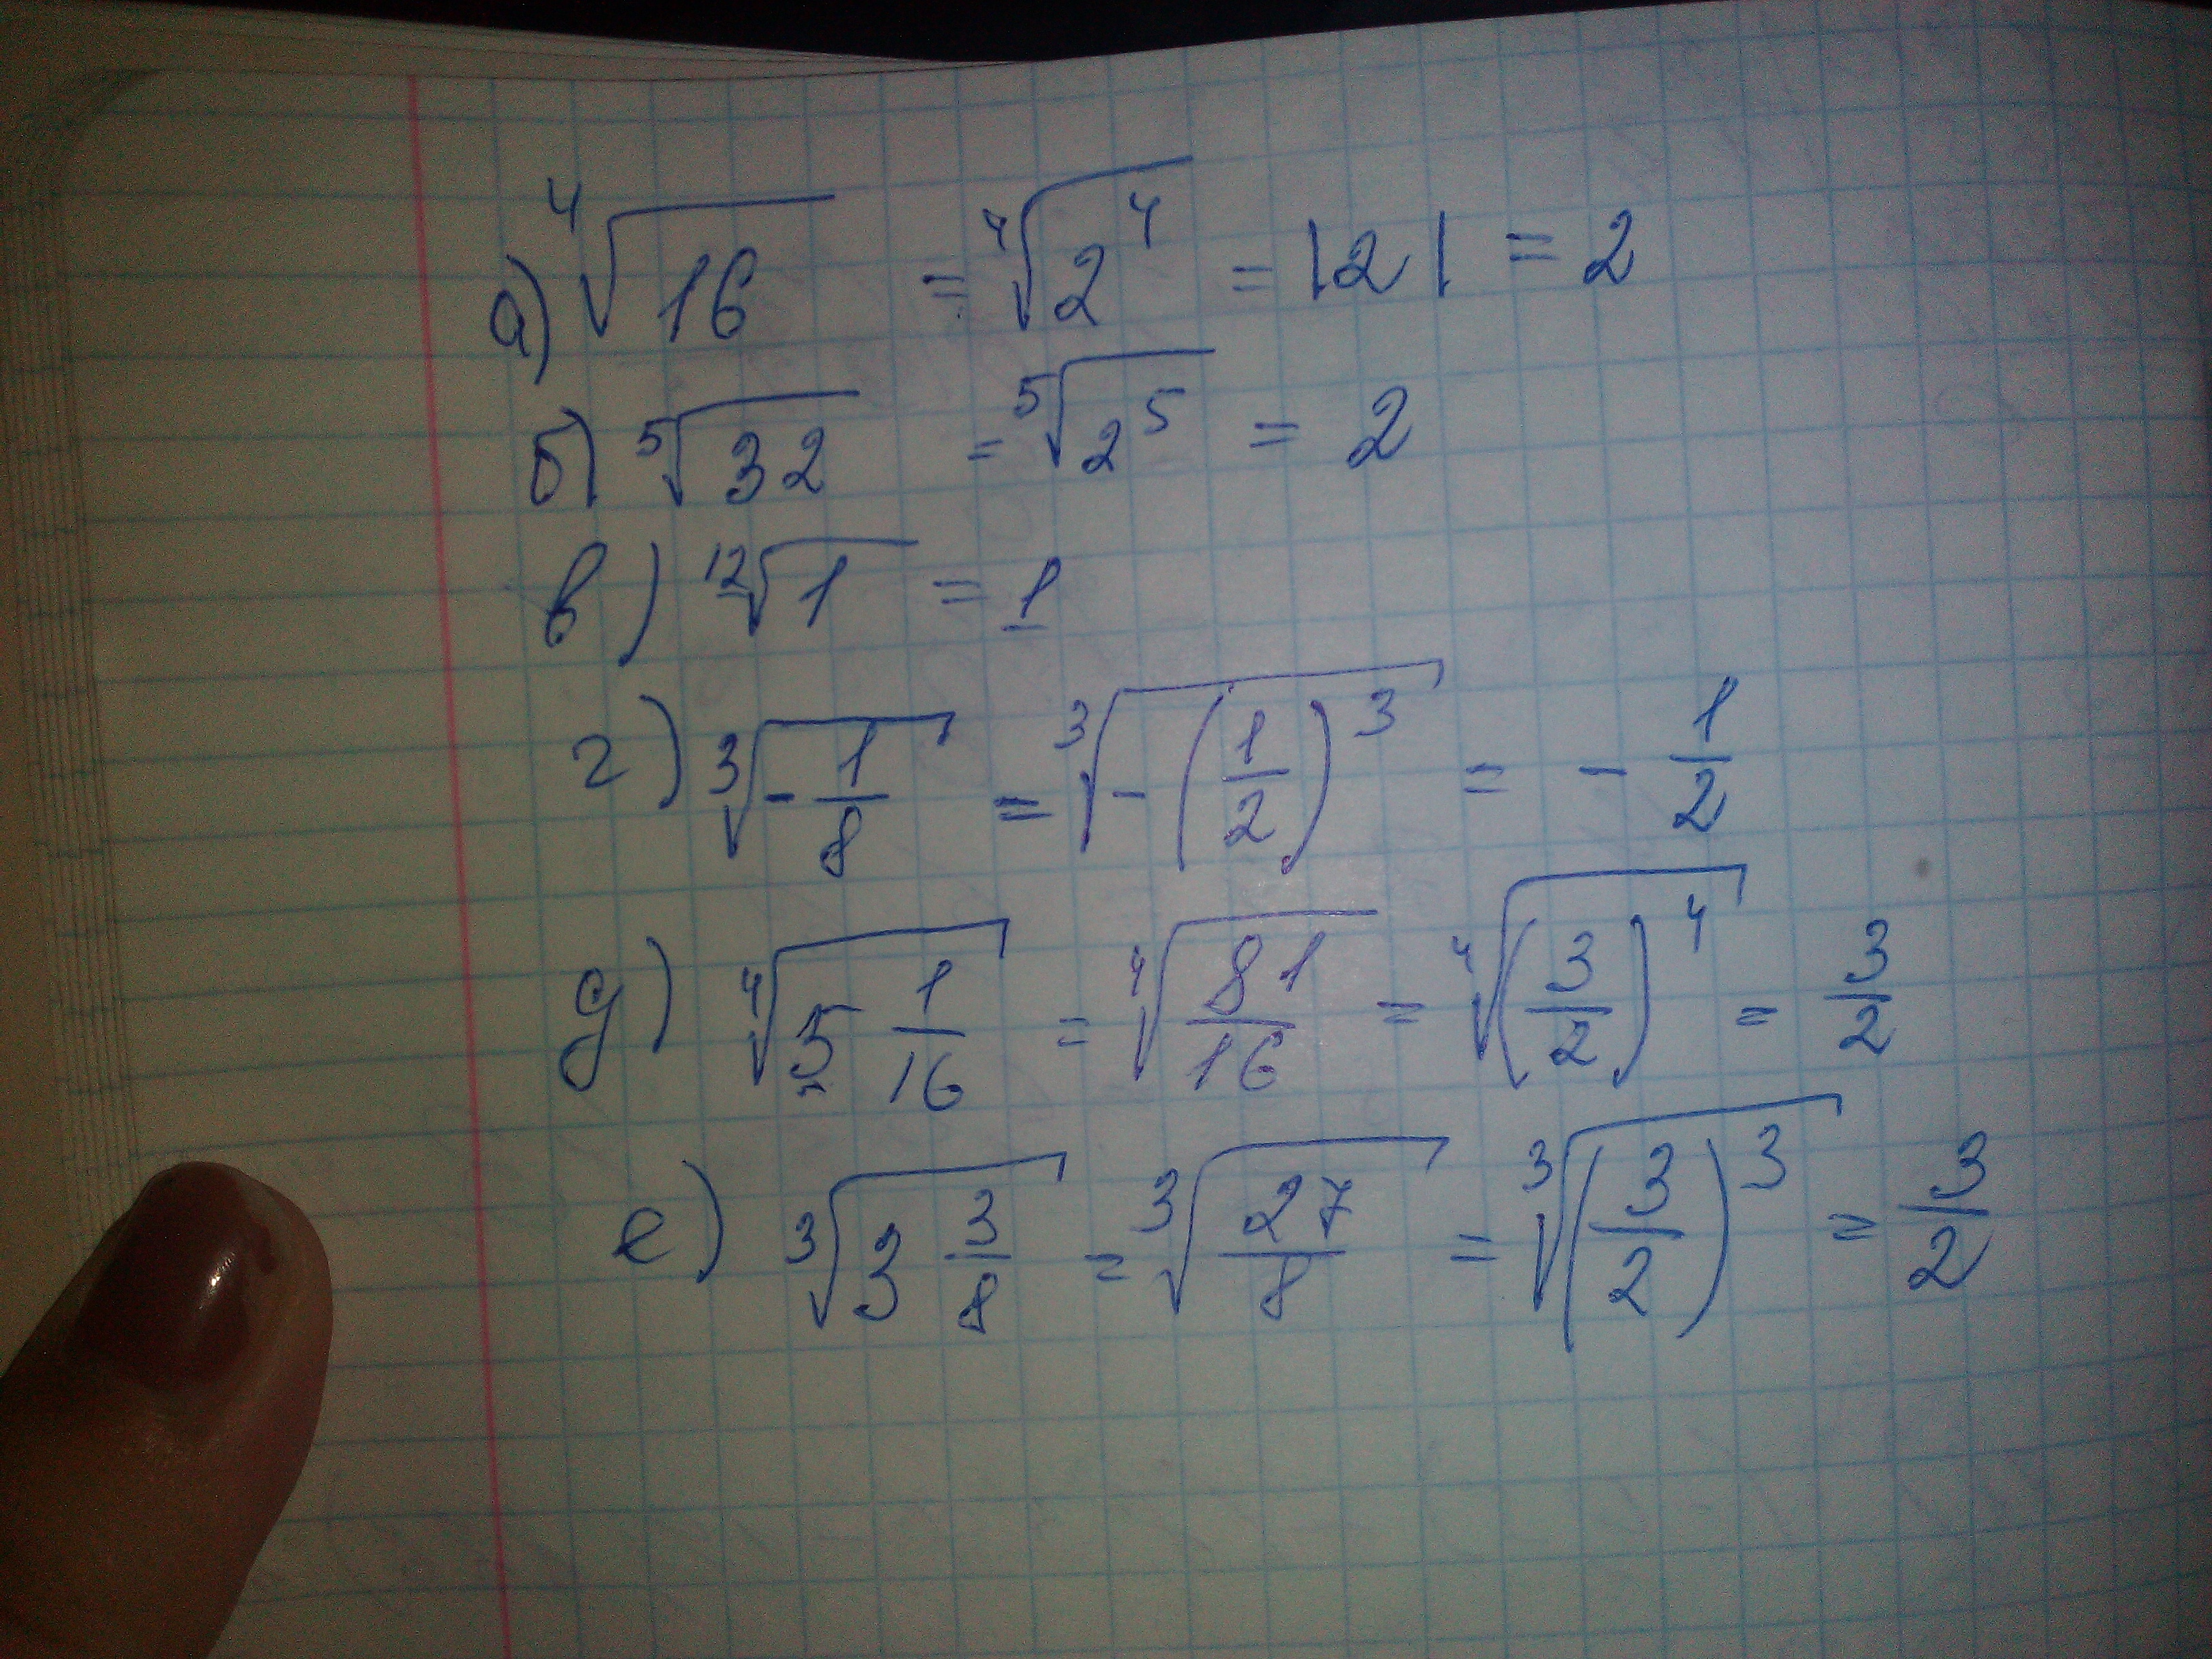 а) ⁴√16 = ⁴√2⁴ = |2| = 2
б) ⁵√32 = ⁵√2⁵ = 2
в) ¹²√1 = 1
г) ³√(-1/8) = ³√(-(1/2)³) = -1/2
д) ⁴√(5 1/16) = ⁴√(81/16) = ⁴√((3/2)⁴) = 3/2
е) ³√(3 3/8) = ³√(27/8) = ³√((3/2)³) = 3/2